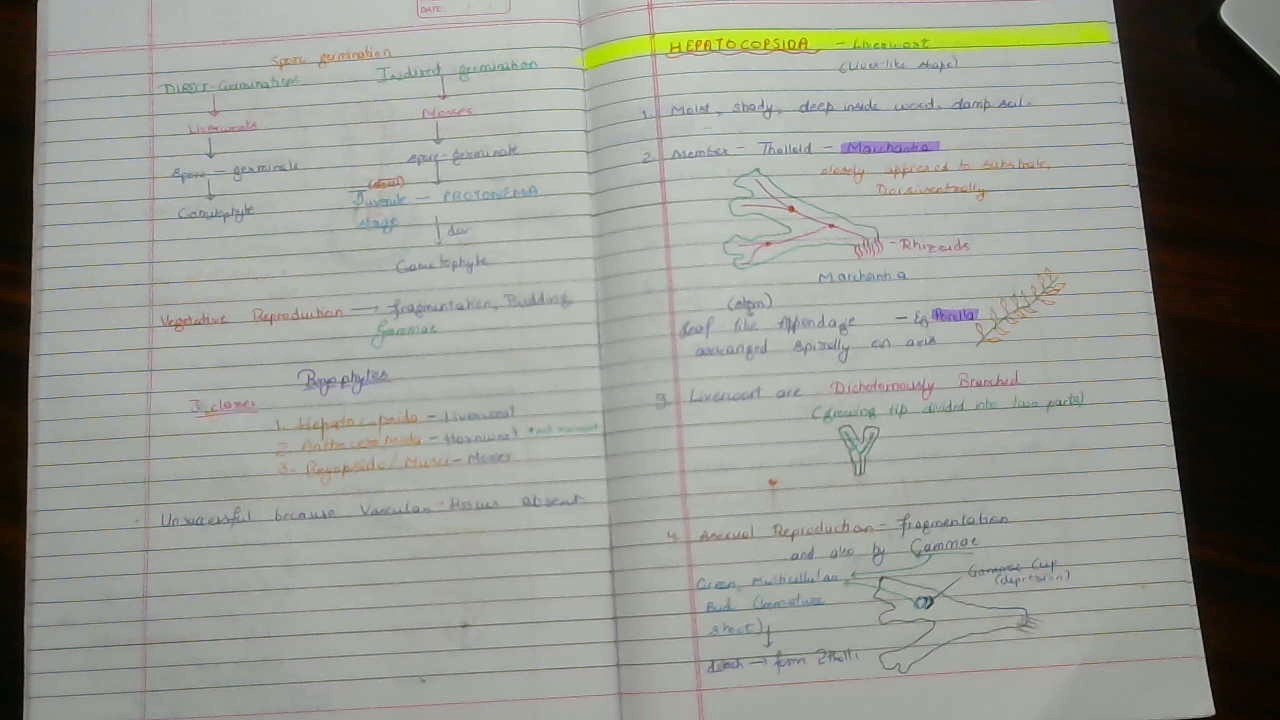 DATE:
Spore germination
DIRECT Germinations
Indirect germination
Liverworts
Mosses
Spore - germinate
Spore-germinate
Gametophyte
Juvenile - PROTONEMA
stage
dev
Gametophyte
Vegetative Reproduction → fragmentation, Budding
Gammae
Bryophytes
3 classes
1. Hepatocopsida - Liverwort
- Hornwort
3. Bryopsida / Musci - Moses
Unsuccessful because Vascular tissues absent
HEPATOCOPSIDA - Liverwort
(Liver like shape)
1. Moist, shady, deep inside wood, damp soil.
2. Member - Thalloid - Marchantia
closely appressed to substrate,
Dorsiventrally
- Rhizoids
Marchantia
leaf like Appendage - Eg Porella
arranged spirally on axis
3. Liverwort are Dichotomously Branched
(Growing tip divided into two parts)
4. Asexual Reproduction - fragmentation
and also by Gammae
Green, Multicellular
Bud (Immature
shoot)
Gammae Cup
(depression)
detach → form Thalli